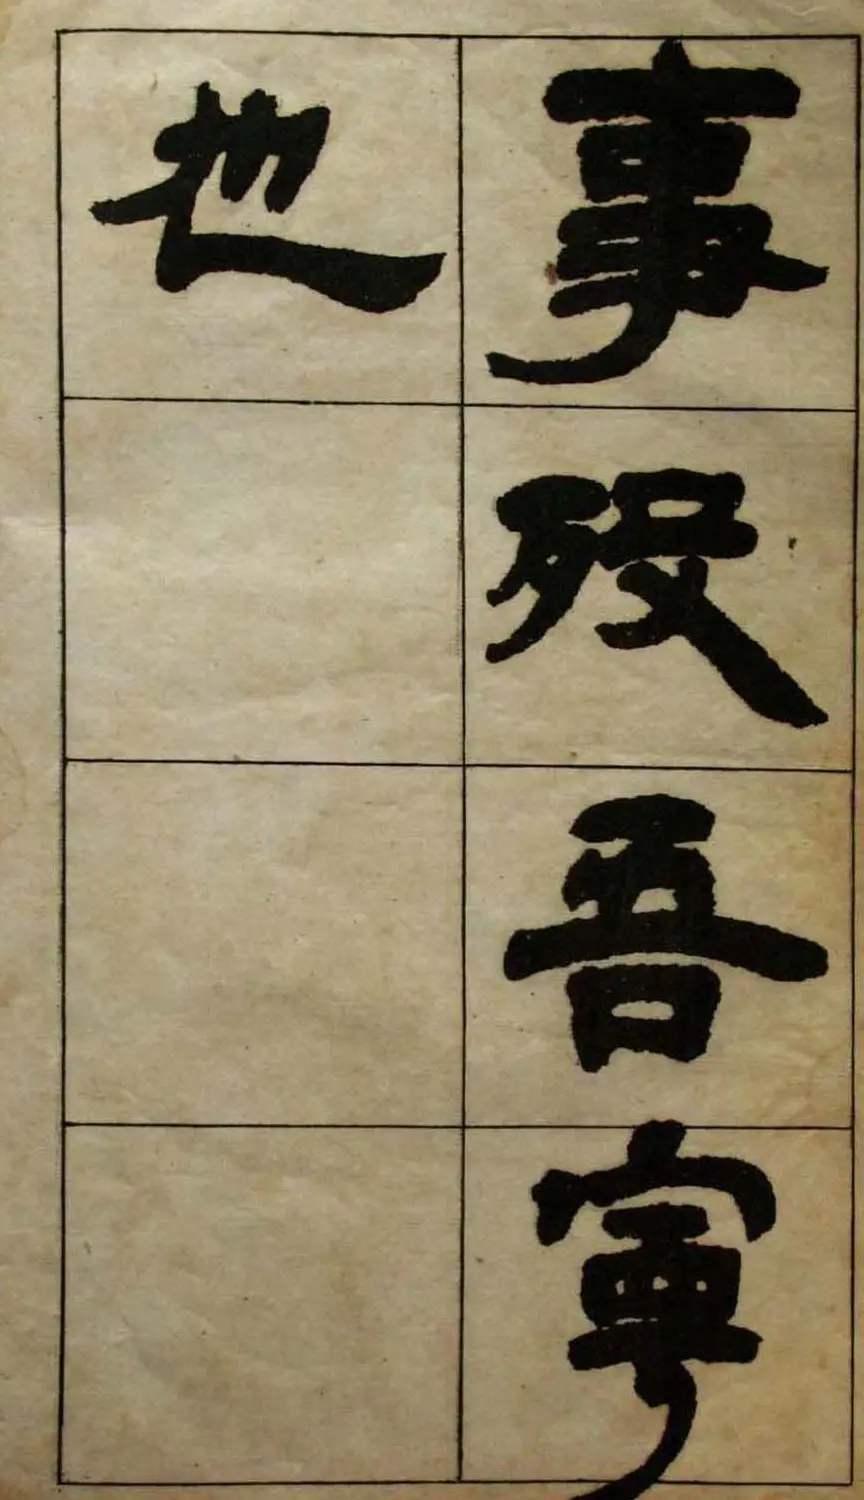 事歿吾寧
也